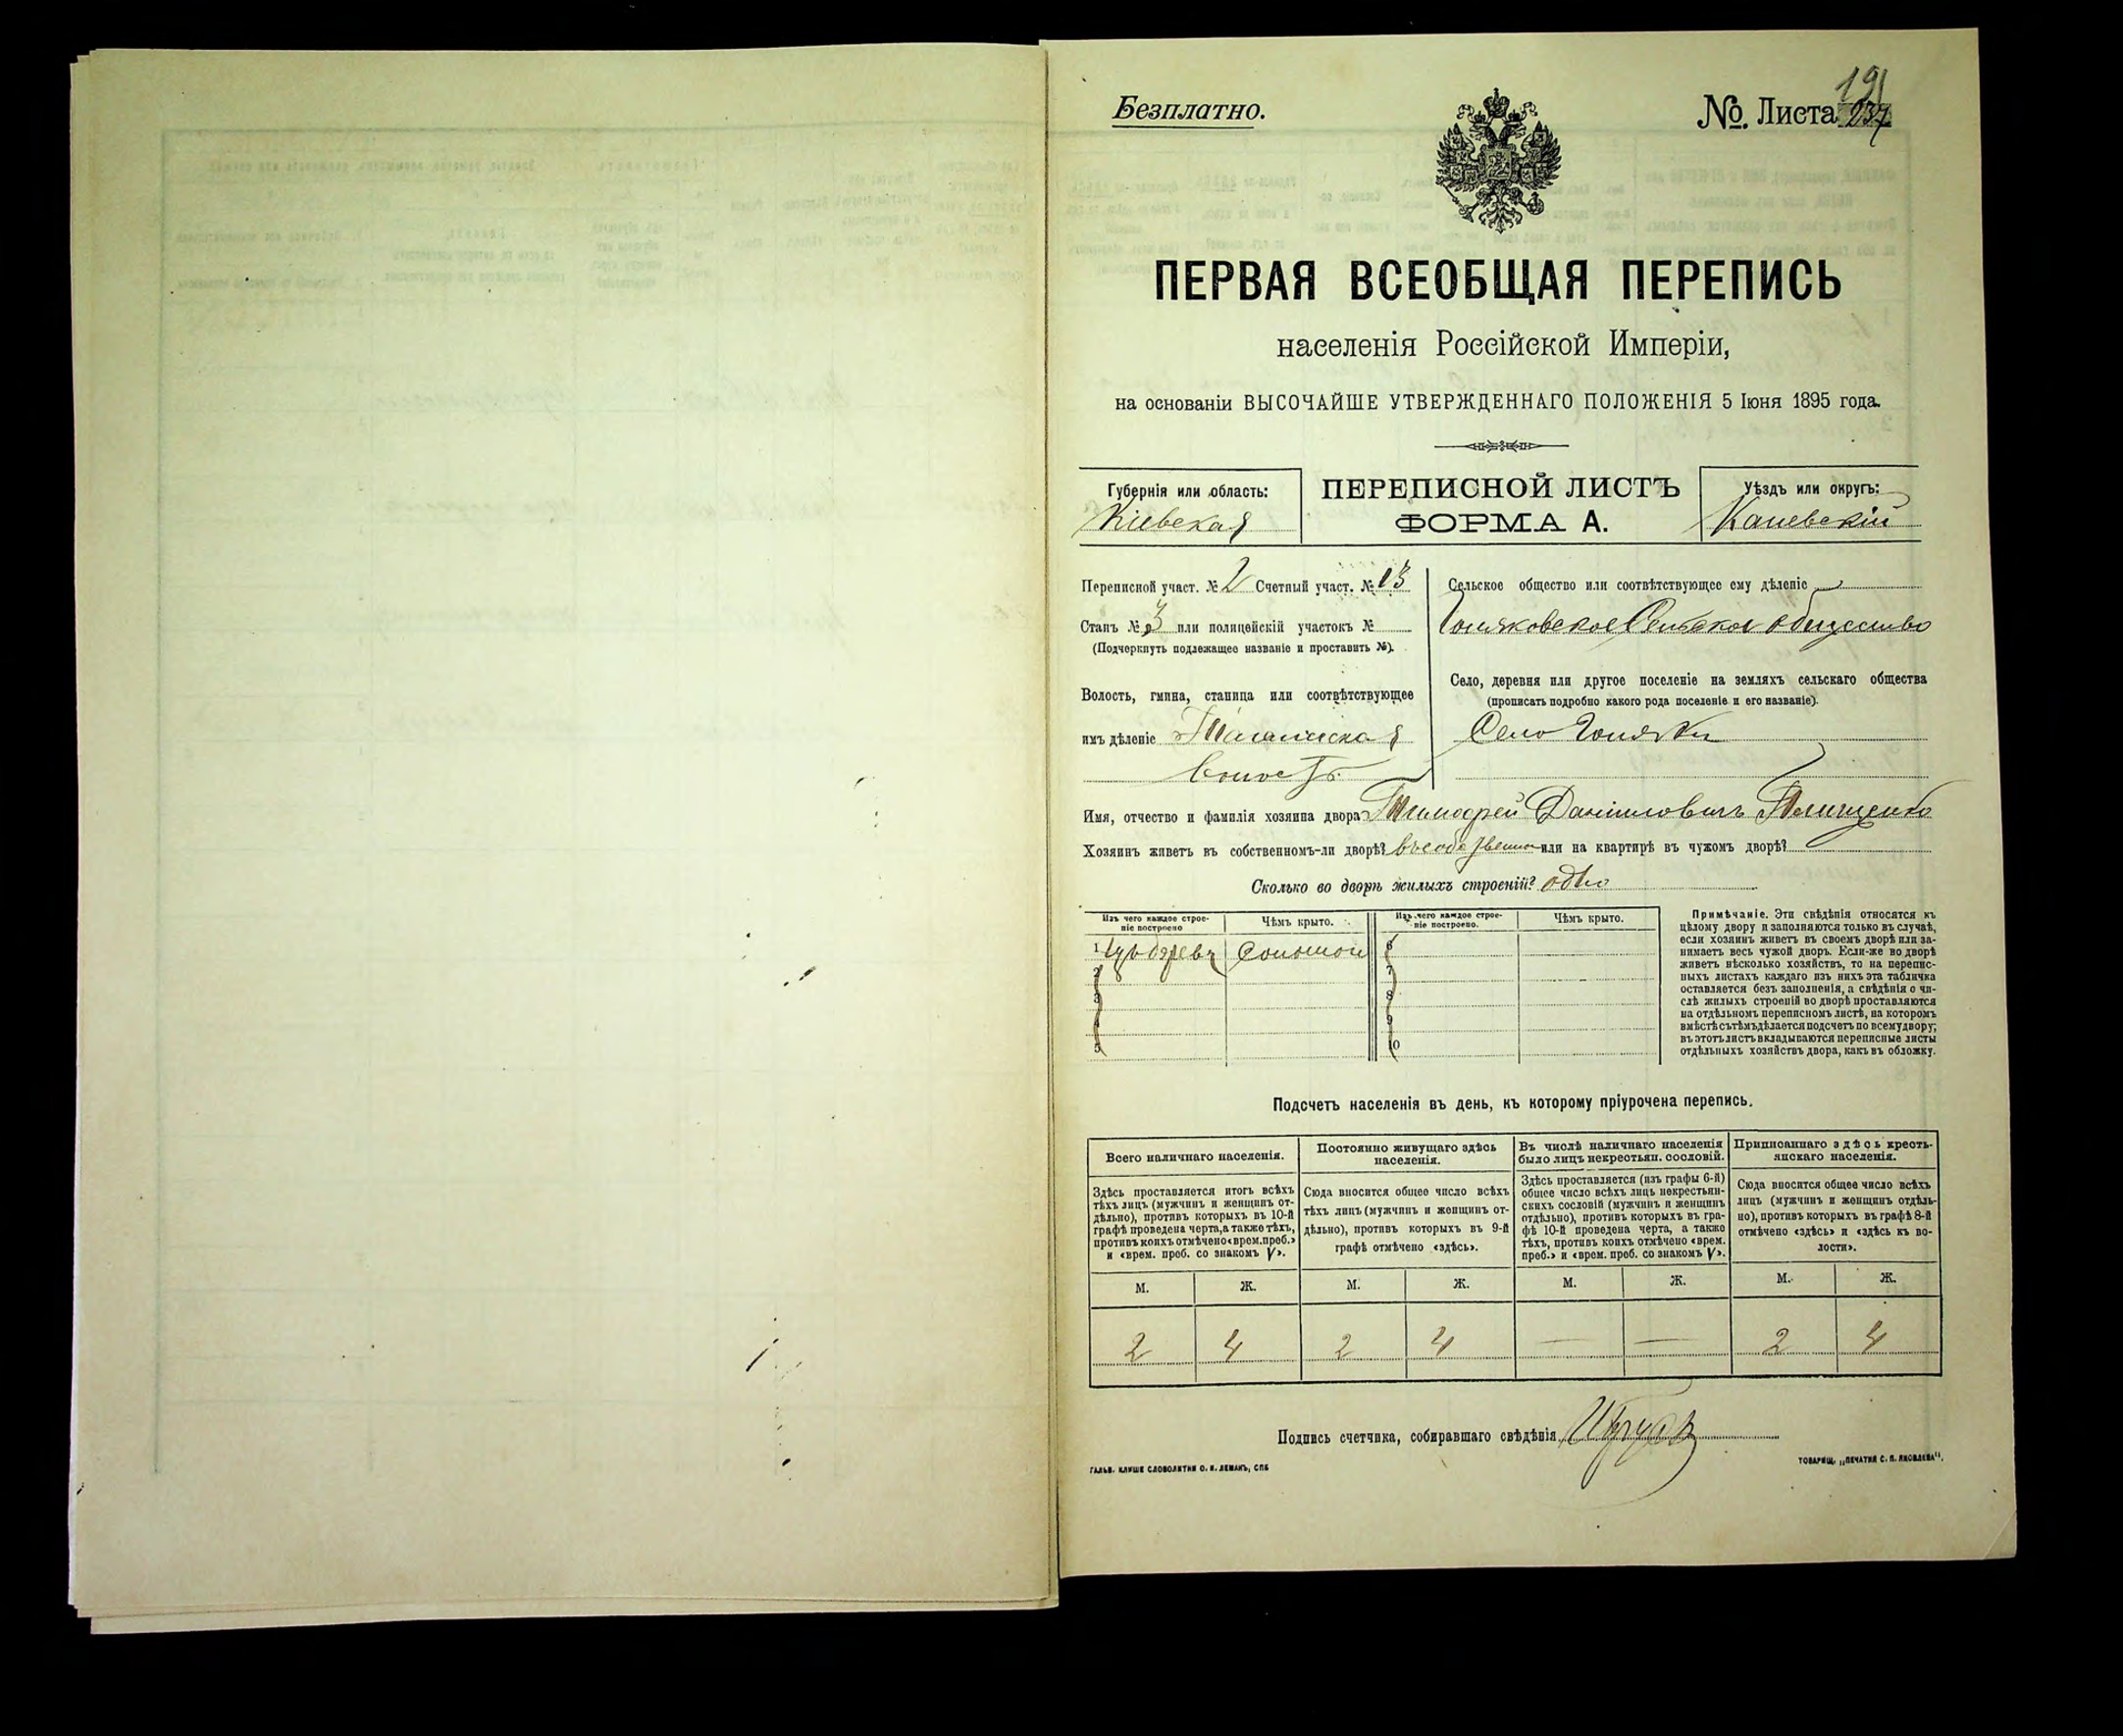 Безплатно.
№ Листа 237
191
ПЕРВАЯ ВСЕОБЩАЯ ПЕРЕПИСЬ
населенія Россійской Имперіи,
на основаніи ВЫСОЧАЙШЕ УТВЕРЖДЕННАГО ПОЛОЖЕНІЯ 5 Іюня 1895 года.
Губернія или область:
Кіевская
ПЕРЕПИСНОЙ ЛИСТЪ
ФОРМА А.
Уѣздъ или округъ:
Каневскій
Переписной участ. № 2 Счетный участ. № 13
Станъ № 3 или полицейскій участокъ №
(Подчеркнуть подлежащее названіе и проставить №).
Волость, гмина, станица или соотвѣтствующее
имъ дѣленіе
Волость
Сельское общество или соотвѣтствующее ему дѣленіе
Сельское общество
Село, деревня или другое поселеніе на земляхъ сельскаго общества
(прописать подробно какого рода поселеніе и его названіе).
Село
Имя, отчество и фамилія хозяина двора Тимофей Даниловичъ
Хозяинъ живетъ въ собственномъ-ли дворѣ? или на квартирѣ въ чужомъ дворѣ?
Сколько во дворѣ жилыхъ строеній? одно
Изъ чего каждое строе-
ніе построено
Чѣмъ крыто.
Изъ чего каждое строе-
ніе построено.
Чѣмъ крыто.
1 Изъ дерева Соломой 6
2 7
3 8
4 9
5 10
Примѣчаніе. Эти свѣдѣнія относятся къ
цѣлому двору и заполняются только въ случаѣ,
если хозяинъ живетъ въ своемъ дворѣ или за-
нимаетъ весь чужой дворъ. Если-же во дворѣ
живетъ нѣсколько хозяйствъ, то на перепис-
ныхъ листахъ каждаго изъ нихъ эта табличка
оставляется безъ заполненія, а свѣдѣнія о чи-
слѣ жилыхъ строеній во дворѣ проставляются
на отдѣльномъ переписномъ листѣ, на которомъ
вмѣстѣ съ тѣмъ дѣлается подсчетъ по всему двору;
въ этотъ листъ вкладываются переписные листы
отдѣльныхъ хозяйствъ двора, какъ въ обложку.
Подсчетъ населенія въ день, къ которому пріурочена перепись.
Всего наличнаго населенія.
Постоянно живущаго здѣсь
населенія.
Въ числѣ наличнаго населенія
было лицъ некрестьян. сословій.
Приписаннаго здѣсь кресть-
янскаго населенія.
Здѣсь проставляется итогъ всѣхъ
тѣхъ лицъ (мужчинъ и женщинъ от-
дѣльно), противъ которыхъ въ 10-й
графѣ проведена черта, а также тѣхъ,
противъ коихъ отмѣчено «врем. преб.»
и «врем. преб. со знакомъ V».
Сюда вносится общее число всѣхъ
тѣхъ лицъ (мужчинъ и женщинъ от-
дѣльно), противъ которыхъ въ 9-й
графѣ отмѣчено «здѣсь».
Здѣсь проставляется (изъ графы 6-й)
общее число всѣхъ лицъ некрестьян-
скихъ сословій (мужчинъ и женщинъ
отдѣльно), противъ которыхъ въ гра-
фѣ 10-й проведена черта, а также
тѣхъ, противъ коихъ отмѣчено «врем.
преб.» и «врем. преб. со знакомъ V».
Сюда вносится общее число всѣхъ
лицъ (мужчинъ и женщинъ отдѣль-
но), противъ которыхъ въ графѣ 8-й
отмѣчено «здѣсь» и «здѣсь къ во-
лости».
М. Ж. М. Ж. М. Ж. М. Ж.
2 4 2 4 — — 2 4
Подпись счетчика, собиравшаго свѣдѣнія
ГАЛЬВ. КЛИШЕ СЛОВОЛИТНИ О. И. ЛЕМАНЪ, СПБ
ТОВАРИЩ. „ПЕЧАТНЯ С. П. ЯКОВЛЕВА".